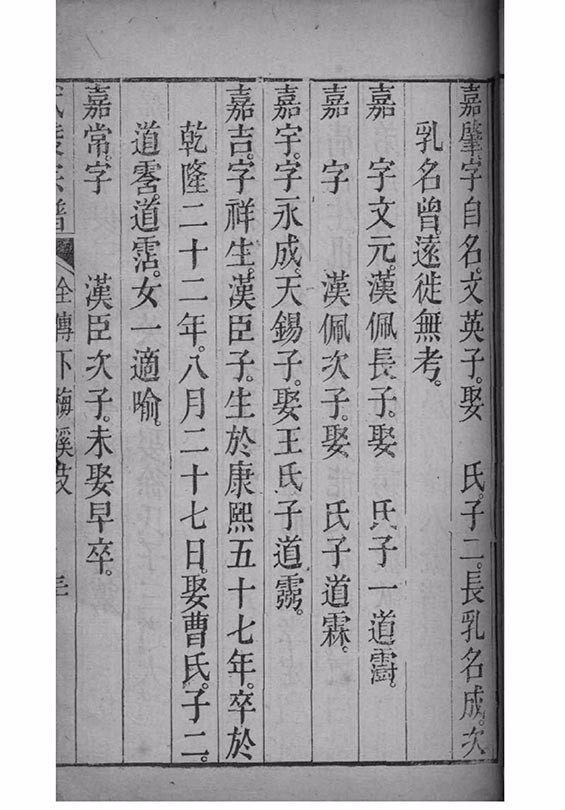 嘉肇。字自名。文英子。娶　氏。子二。長乳名成。次
乳名曾。遠徙無考。
嘉　字文元。漢佩長子。娶　氏子一道霨。
嘉　字　漢佩次子。娶　氏子道霖。
嘉宇。字永成。天錫子。娶王氏子道
嘉吉。字祥生。漢臣子。生於康熙五十七年。卒於
乾隆二十二年。八月二十七日。娶曹氏。子二。
道霑。女一適喻。
嘉常。字　漢臣次子。未娶早卒。
宗譜　下梅溪